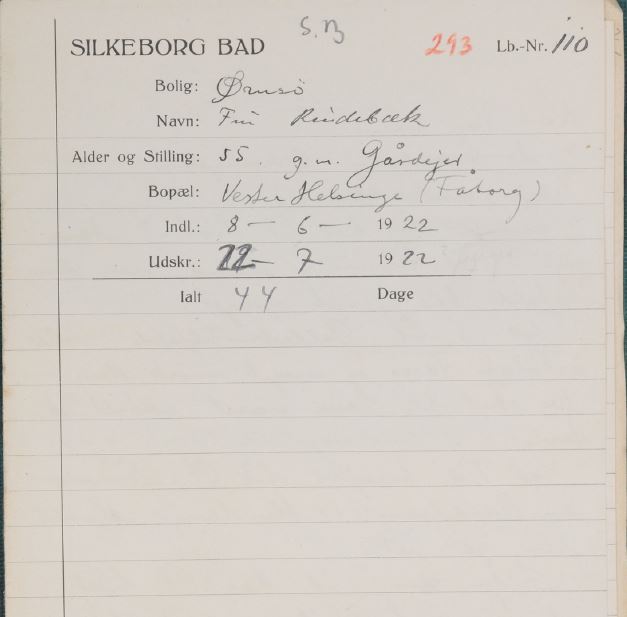 S.B
SILKEBORG BAD 293 Lb.-Nr. 110
Bolig: Ørnsö
Navn: Fru Rindebæk
Alder og Stilling: 55. g.m. Gårdejer
Bopæl: Vester Helsinge (Fåborg)
Indl.: 8 — 6 — 1922
Udskr.: 22 — 7 1922
Ialt 44 Dage